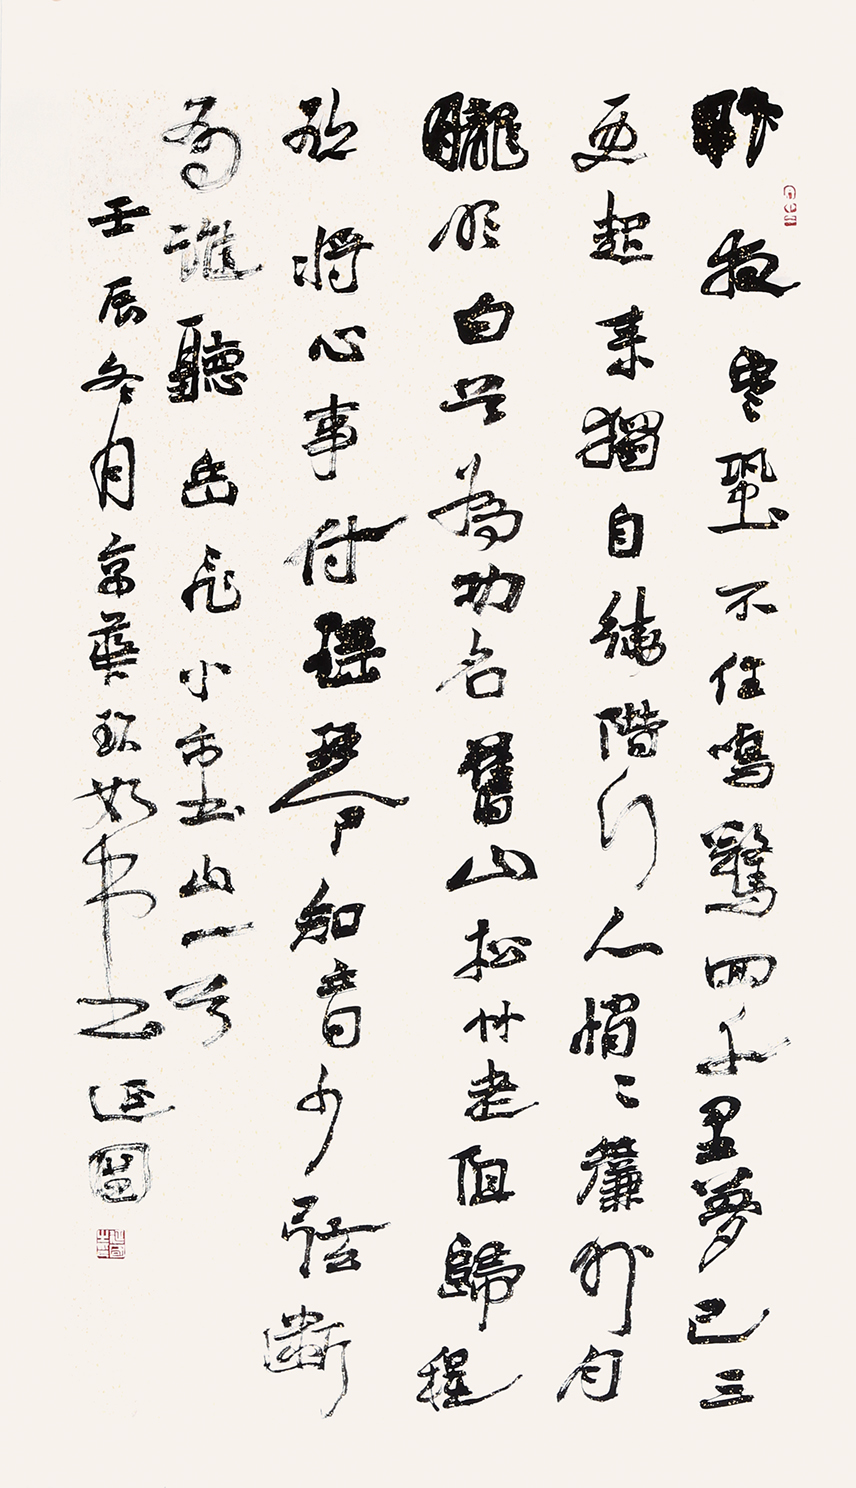 昨夜寒蛩不住鳴驚回千里夢已三
更起來獨自繞階行人悄〻簾外月
朧明白首為功名舊山松竹老阻歸程
欲將心事付瑤琴知音少弦斷
有誰聽岳飛小重山一首
壬辰冬月京華書之